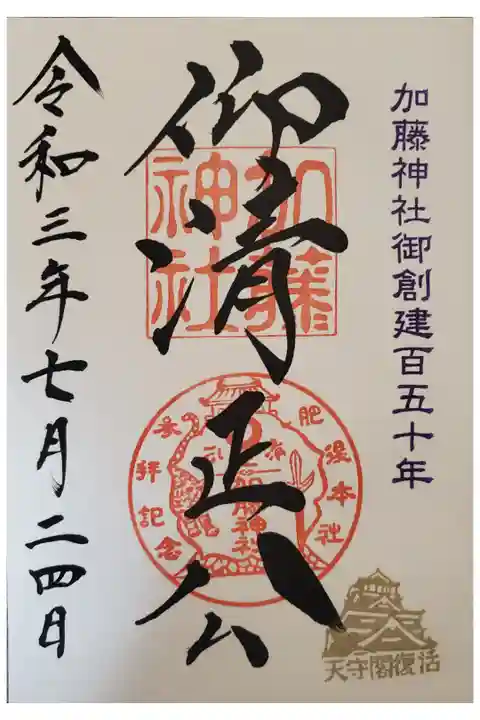 加藤神社御創建百五十年
仰清正公
加藤神社
肥後本社
参拝記念
加藤神社
令和三年七月二四日
天守閣復活